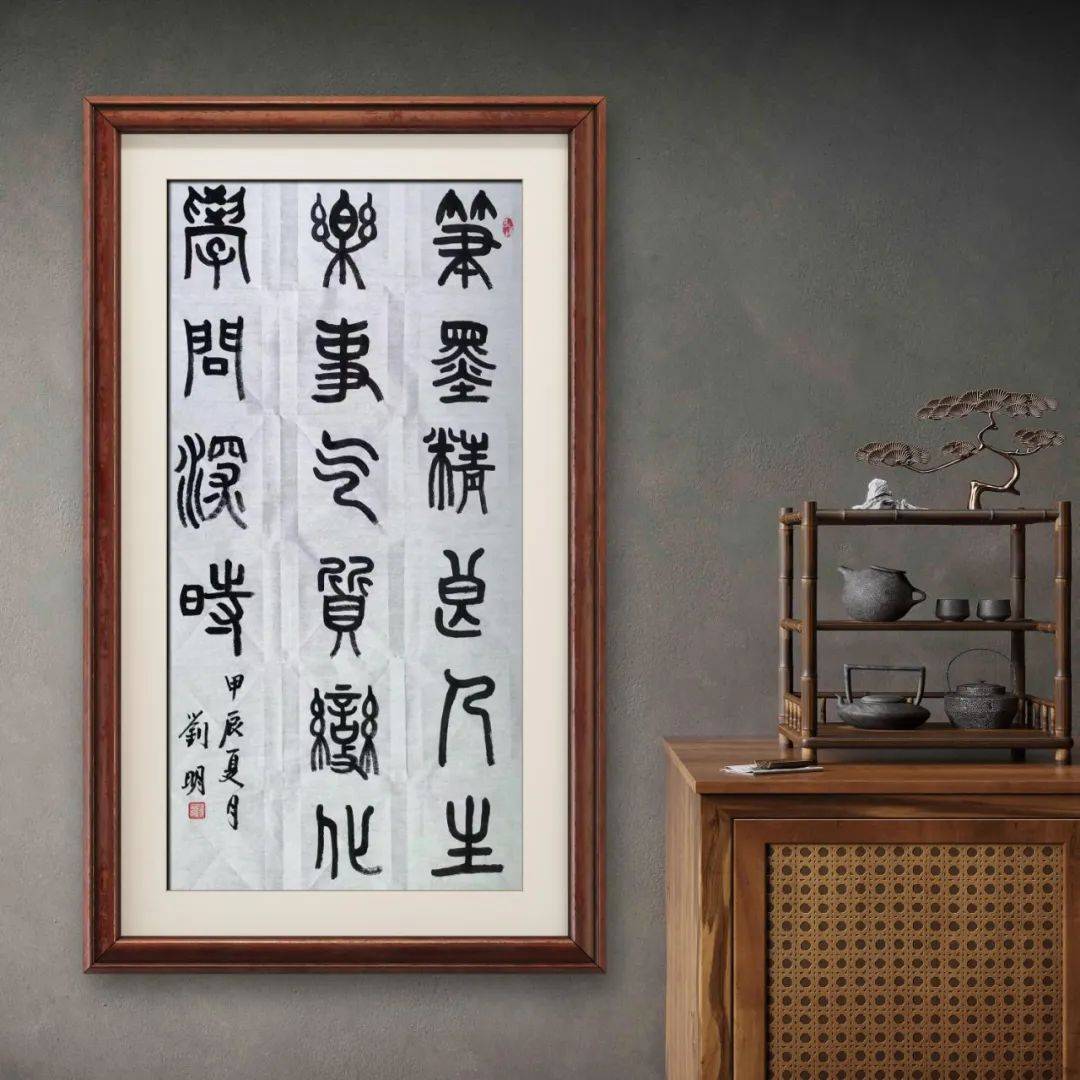 筆墨精良人生
樂事气質變化
學問深時
甲辰夏月
劉明